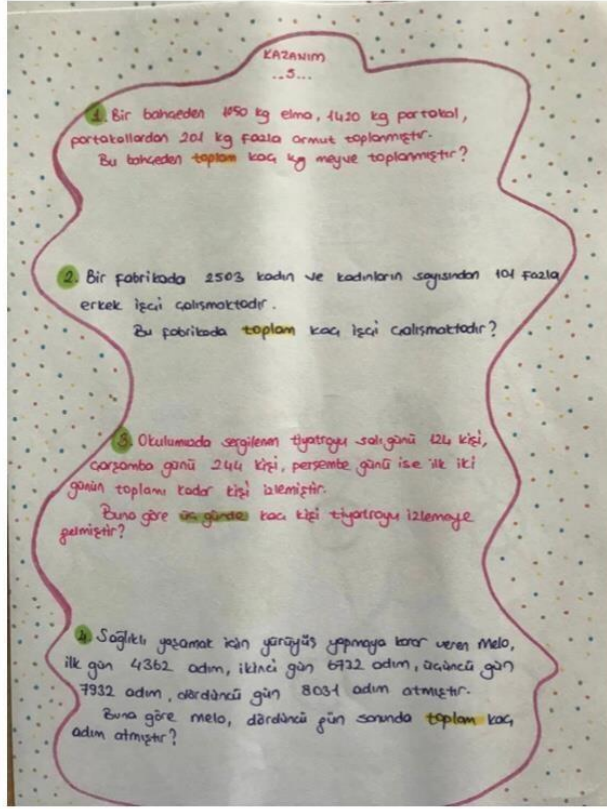 KAZANIM
..5...
1. Bir bahçeden 1050 kg elma, 1420 kg portakal,
portakallardan 201 kg fazla armut toplanmıştır.
Bu bahçeden toplam kaç kg meyve toplanmıştır?
2. Bir fabrikada 2503 kadın ve kadınların sayısından 101 fazla
erkek işçi çalışmaktadır.
Bu fabrikada toplam kaç işçi çalışmaktadır?
3. Okulumuzda sergilenen tiyatroyu salı günü 124 kişi,
çarşamba günü 244 kişi, perşembe günü ise ilk iki
günün toplamı kadar kişi izlemiştir.
Buna göre üç günde kaç kişi tiyatroyu izlemeye
gelmiştir?
4. Sağlıklı yaşamak için yürüyüş yapmaya karar veren Melo,
ilk gün 4362 adım, ikinci gün 6722 adım, üçüncü gün
7932 adım, dördüncü gün 8031 adım atmıştır.
Buna göre Melo, dördüncü gün sonunda toplam kaç
adım atmıştır?